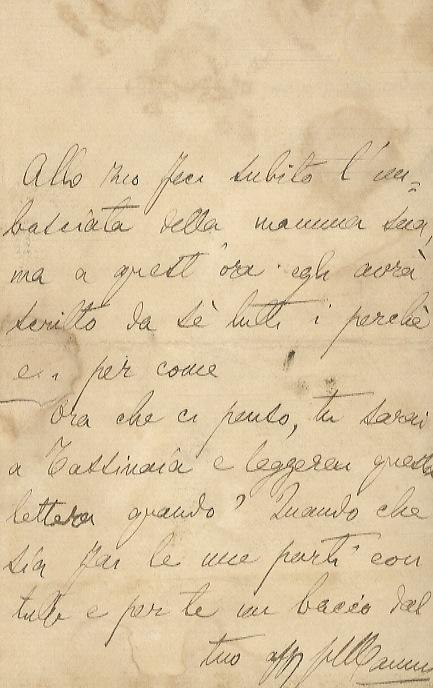 Allo zio feci subito l'im=
basciata della mamma sua,
ma a quest'ora egli avrà
scritto da sè tutti i perchè
e i per come
Ora che ci penso, tu sarai
a e leggerai questa
lettera quando? Quando che
sia fai le mie parti con
tutti e per te un bacio dal
tuo aff